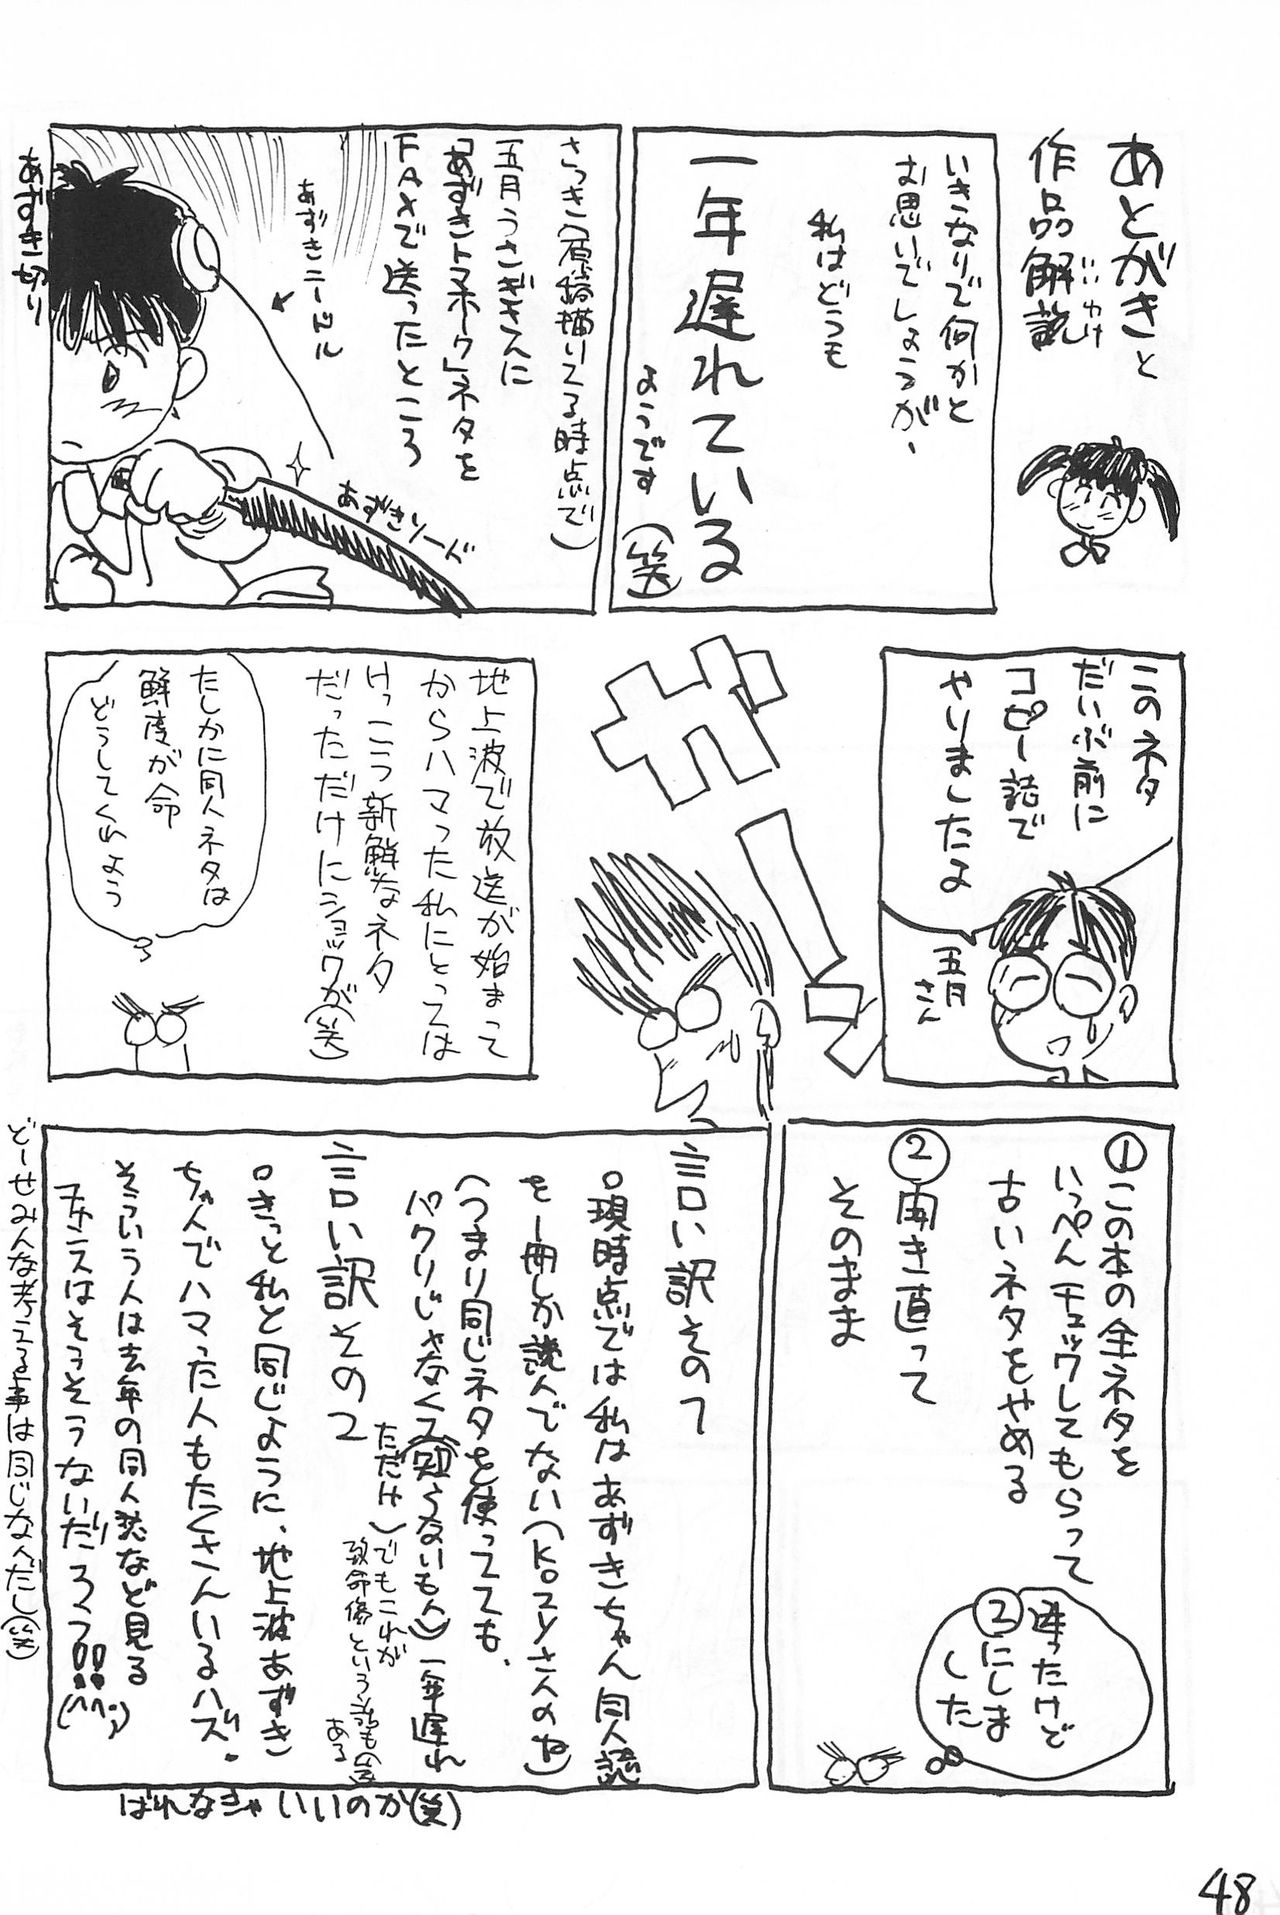 あとがきと
作品解説
いいわけ
いきなりで何かと
お思いでしょうが、
私はどうも
一年遅れている
ようです
(笑)
さっき(原稿描いてる時点で)
五月うさぎさんに
「あずきトマホーク」ネタを
FAXで送ったところ
あずきニードル
あずきソード
あずき切り
このネタ
だいぶ前に
コピー誌で
やりましたよ
五月
さん
ガーン
地上波で放送が始まって
からハマった私にとっては
けっこう新鮮なネタ
だっただけにショックが(笑)
たしかに同人ネタは
鮮度が命
どうしてくれよう
①この本の全ネタを
いっぺんチェックしてもらって
古いネタをやめる
②開き直って
そのまま
迷ったけど
②にしま
した
言い訳その1
○現時点では私はあずきちゃん同人誌
を一冊しか読んでない(KOZYさんのね)
(つまり同じネタを使ってても、
パクリじゃなくて(知らないもん)一年遅れ
ただけ)でもこれが
致命傷という話も(笑)
ある
言い訳その2
○きっと私と同じように、地上波あずき
ちゃんでハマった人もたくさんいるハズ。
そういう人は去年の同人誌など見る
チャンスはそうそうないだろう!!
(^^;)
どーせみんな考える事は同じなんだし(笑)
ばれなきゃいいのか(笑)
48